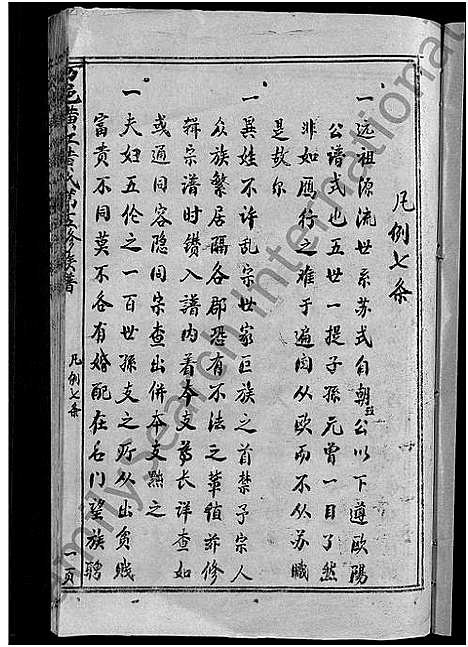 凡例七条
一远祖源流世系苏式自朝廷公以下遵欧陽
公谱式也五世一提子孫元曾一目了然
非如雁行之难于遍阅从欧而不从苏職
是故尔
一異姓不许乱宗世家巨族之首禁子宗人
众族繁居隔各郡恐有不法之輩值兹修
辑宗谱时鑽入譜内着本支尊长详查如
或通同容隐同宗查出併本支黜之
一夫妇五伦之一百世孫支之所从出貧贱
富贵不同莫不各有婚配在名门望族聘
邑黄 黄氏 五修族譜
凡例七条
一页
FamilySearch International